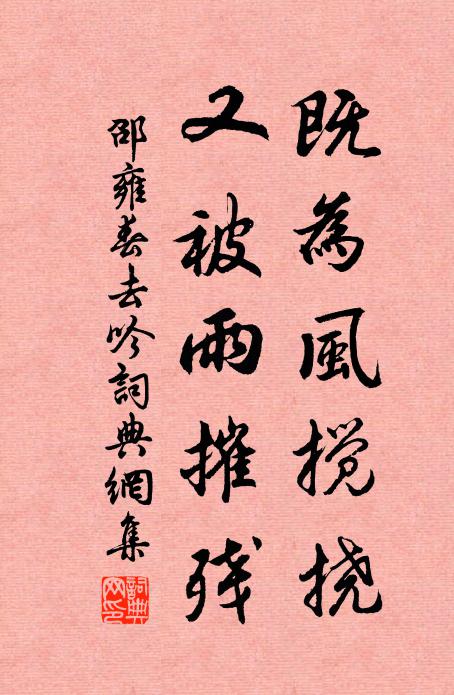 既為風搅挠
又被雨摧残
邵雍春去吟詞典網集
詞典網印